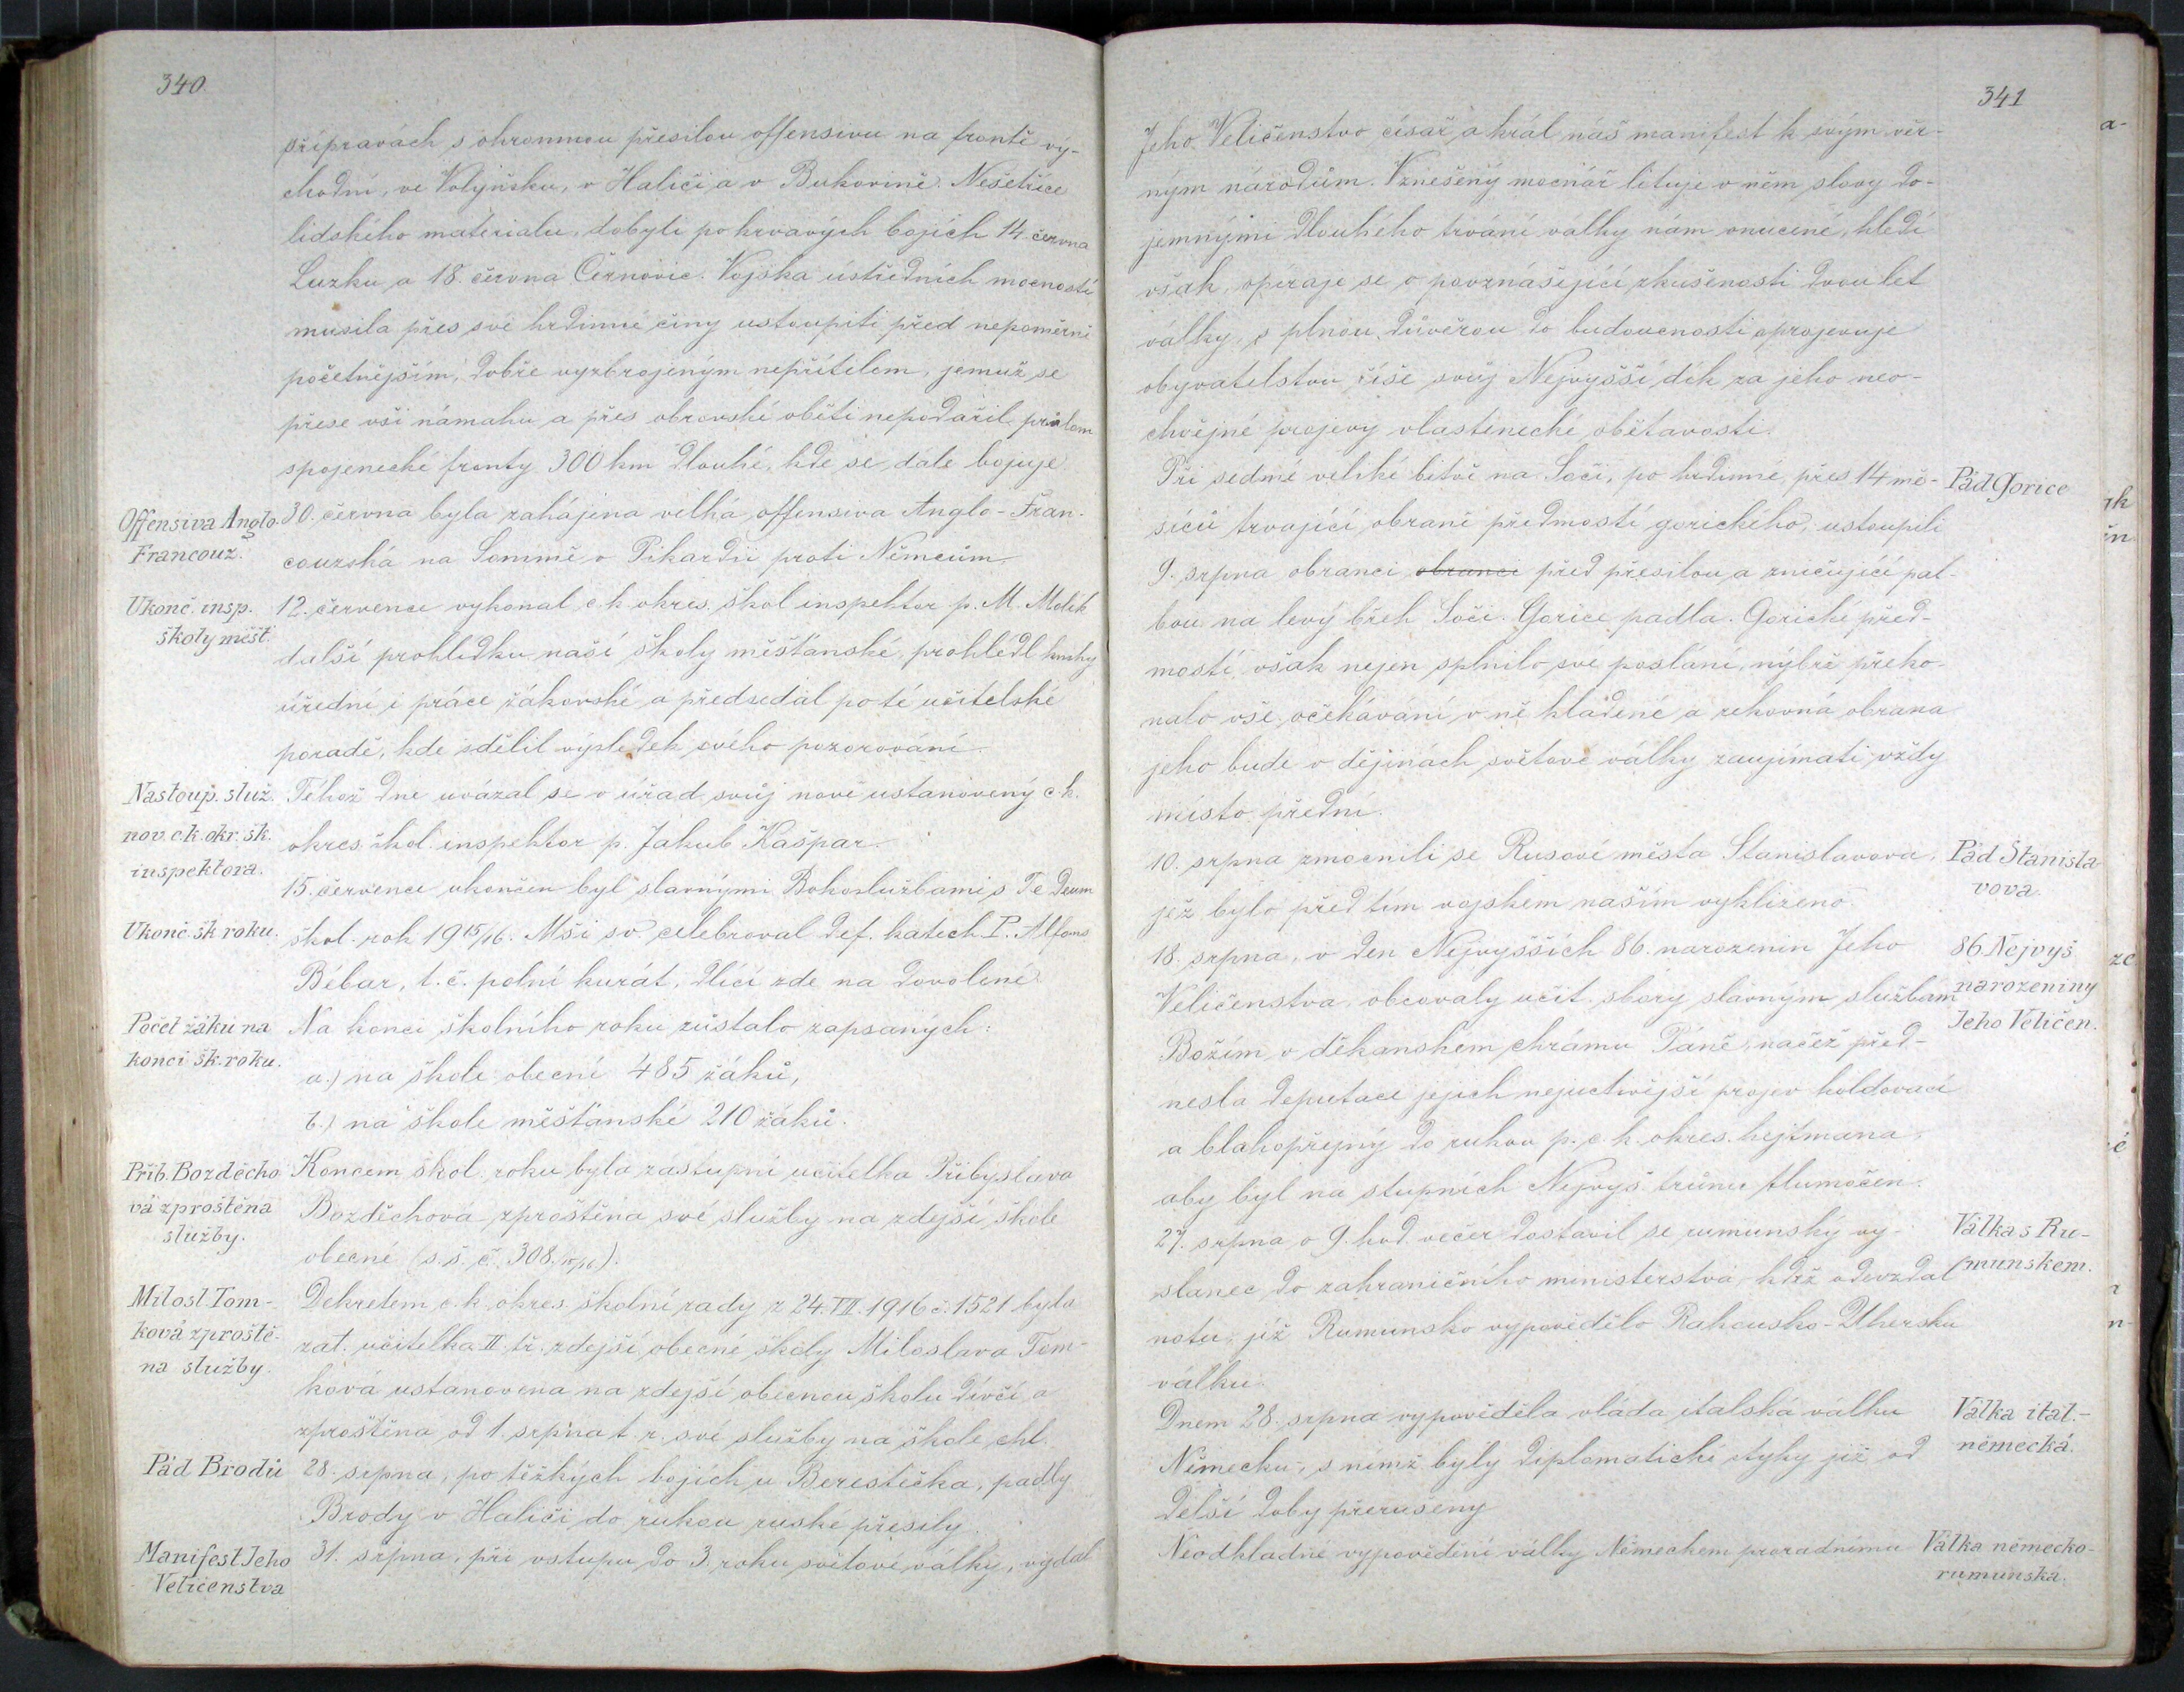 340.
přípravách s ohromnou přesilou offensivu na frontě vý-
chodní, ve Volyňsku, v Haliči a v Bukovině. Nešetříce
lidského materialu, dobyli po krvavých bojích 14. června
Luzku a 18. června Černovic. Vojska ústředních mocností
musila přes své hrdinné činy ustoupiti před nepoměrně
početnějším, dobře vyzbrojeným nepřítelem, jemuž se
přese vši námahu a přes obrovské oběti nepodařil průlom
spojenecké fronty 300 km dlouhé, kde se dále bojuje.
Offensiva Anglo-
Francouz.
30. června byla zahájena velká offensiva Anglo-Fran-
couzská na Sommě v Pikardii proti Němcům.
Ukonč. insp.
školy měšť.
12. července vykonal c. k. okres. škol. inspektor p. M. Malík
další prohlídku naší školy měšťanské, prohlédl knihy
úřední i práce žákovské a předsedal poté učitelské
poradě, kde sdělil výsledek svého pozorování.
Nastoup. služ.
nov. c. k. okr. šk.
inspektora.
Téhož dne uvázal se v úřad svůj nově ustanovený c. k.
okres. škol. inspektor p. Jakub Kašpar.
15. července ukončen byl slavnými Bohoslužbami s Te Deum
Ukonč. šk. roku.
škol. rok 1915/16. Mši sv. celebroval def. katech. P. Alfons
Bébar, t. č. polní kurát, dlící zde na dovolené.
Počet žáků na
konci šk. roku.
Na konci školního roku zůstalo zapsaných:
a.) na škole obecní 485 žáků,
b.) na škole měšťanské 210 žáků.
Přib. Bozděcho
vá zproštěna
služby.
Koncem škol. roku byla zástupní učitelka Přibyslava
Bozděchová zproštěna své služby na zdejší škole
obecné (s. š. č. 308. 15/16).
Milosl. Tom-
ková zproště-
na služby.
Dekretem c. k. okres. školní rady z 24. VII. 1916 č. 1521 byla
zat. učitelka II. tř. zdejší obecné školy Miloslava Tom-
ková ustanovena na zdejší obecnou školu dívčí a
zproštěna od 1. srpna t. r. své služby na škole chl.
Pád Brodů
28. srpna, po těžkých bojích u Berestečka, padly
Brody v Haliči do rukou ruské přesily.
Manifest Jeho
Veličenstva
31. srpna, při vstupu do 3. roku světové války, vydal
341
Jeho Veličenstvo císař a král náš manifest k svým věr-
ným národům. Vznešený mocnář lituje v něm slovy do-
jemnými dlouhého trvání války nám vnucené, hledí
však, opíraje se o povznášející zkušenosti dvou let
války, s plnou důvěrou do budoucnosti a projevuje
obyvatelstvu říše svůj Nejvyšší dík za jeho neo-
chvějné projevy vlastenecké obětavosti.
Při sedmé veliké bitvě na Soči, po hrdinné, přes 14 mě-
Pád Gorice
síců trvající obraně předmostí gorického, ustoupili
9. srpna obranci obranci před přesilou a zničující pal-
bou na levý břeh Soči. Gorice padla. Gorické před-
mostí však nejen splnilo své poslání, nýbrž překo-
nalo vše očekávání v ně kladené a rekovná obrana
jeho bude v dějinách světové války zaujímati vždy
místo přední.
10. srpna zmocnili se Rusové města Stanislavova,
Pád Stanisla
vova.
jež bylo před tím vojskem naším vyklizeno.
18. srpna, v den Nejvyšších 86. narozenin Jeho
86. Nejvyš.
narozeniny
Jeho Veličen.
Veličenstva, obcovaly učit. sbory slavným službám
Božím v děkanském chrámu Páně, načež před-
nesla deputace jejich nejuctivější projev holdovací
a blahopřejný do rukou p. c. k. okres. hejtmana,
aby byl na stupních Nejvyš. trůnu tlumočen.
27. srpna o 9. hod. večer dostavil se rumunský vy-
Válka s Ru-
munskem.
slanec do zahraničního ministerstva, kdež odevzdal
notu, již Rumunsko vypovědělo Rakousko-Uhersku
válku.
Dnem 28. srpna vypověděla vláda italská válku
Válka ital.-
německá.
Německu, s nímž byly diplomatické styky již od
delší doby přerušeny
Neodkladné vypovědění války Německem proradnému
Válka německo-
rumunská.